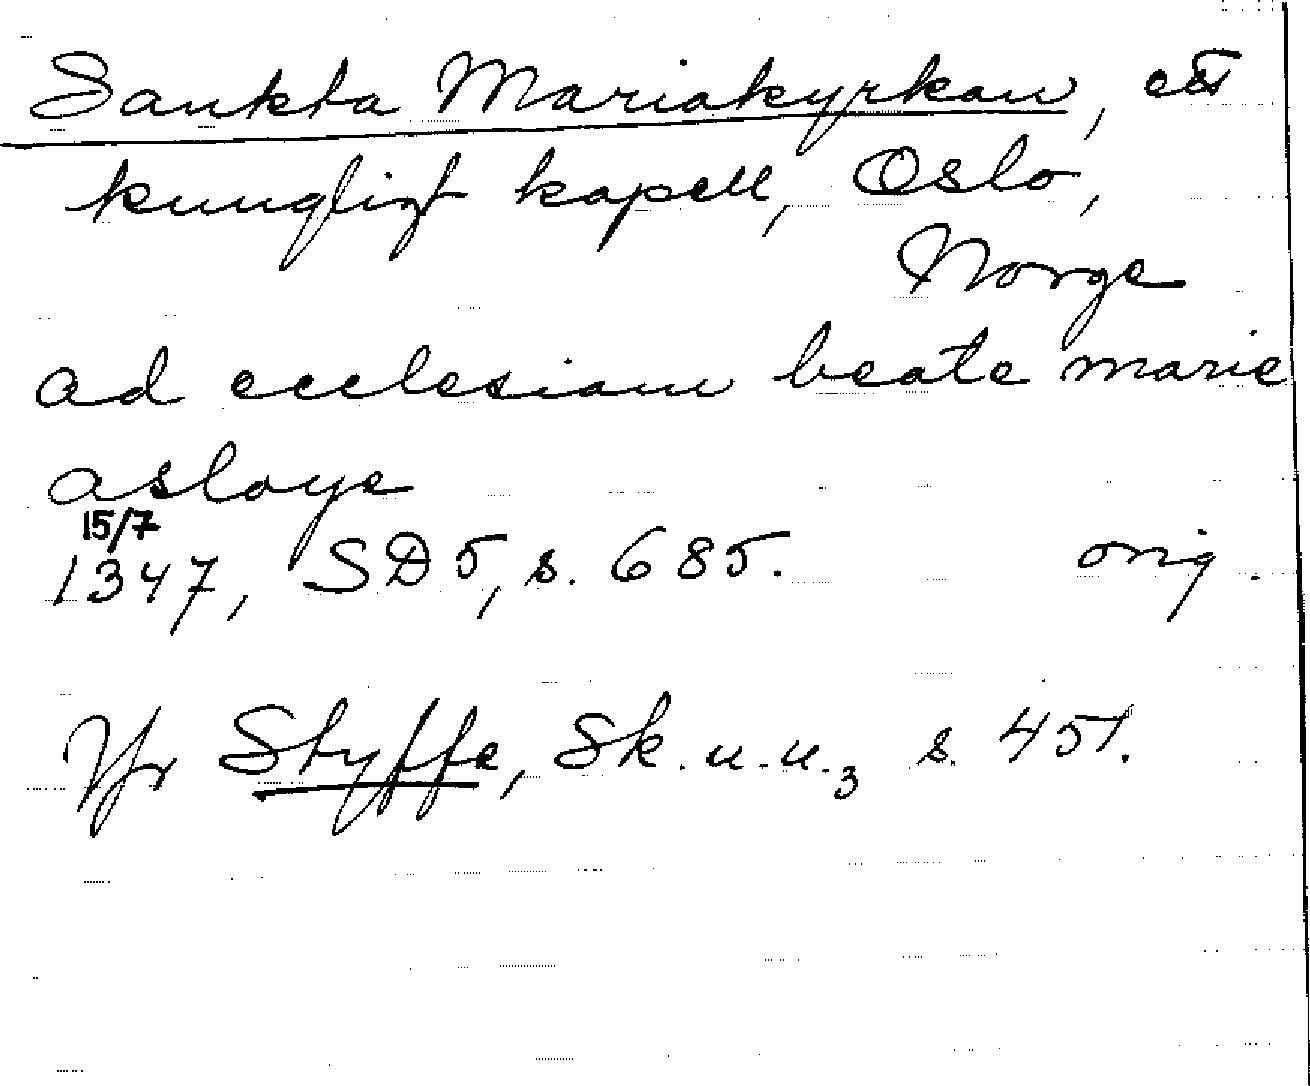 Sankta Mariakyrkan, ett
kungligt kapell, Oslo,
Norge
ad ecclesiam beate marie
asloye
15/7
1347, SD 5, s. 685. orig.
Jfr Styffe, Sk. u. u. 3 s. 451.